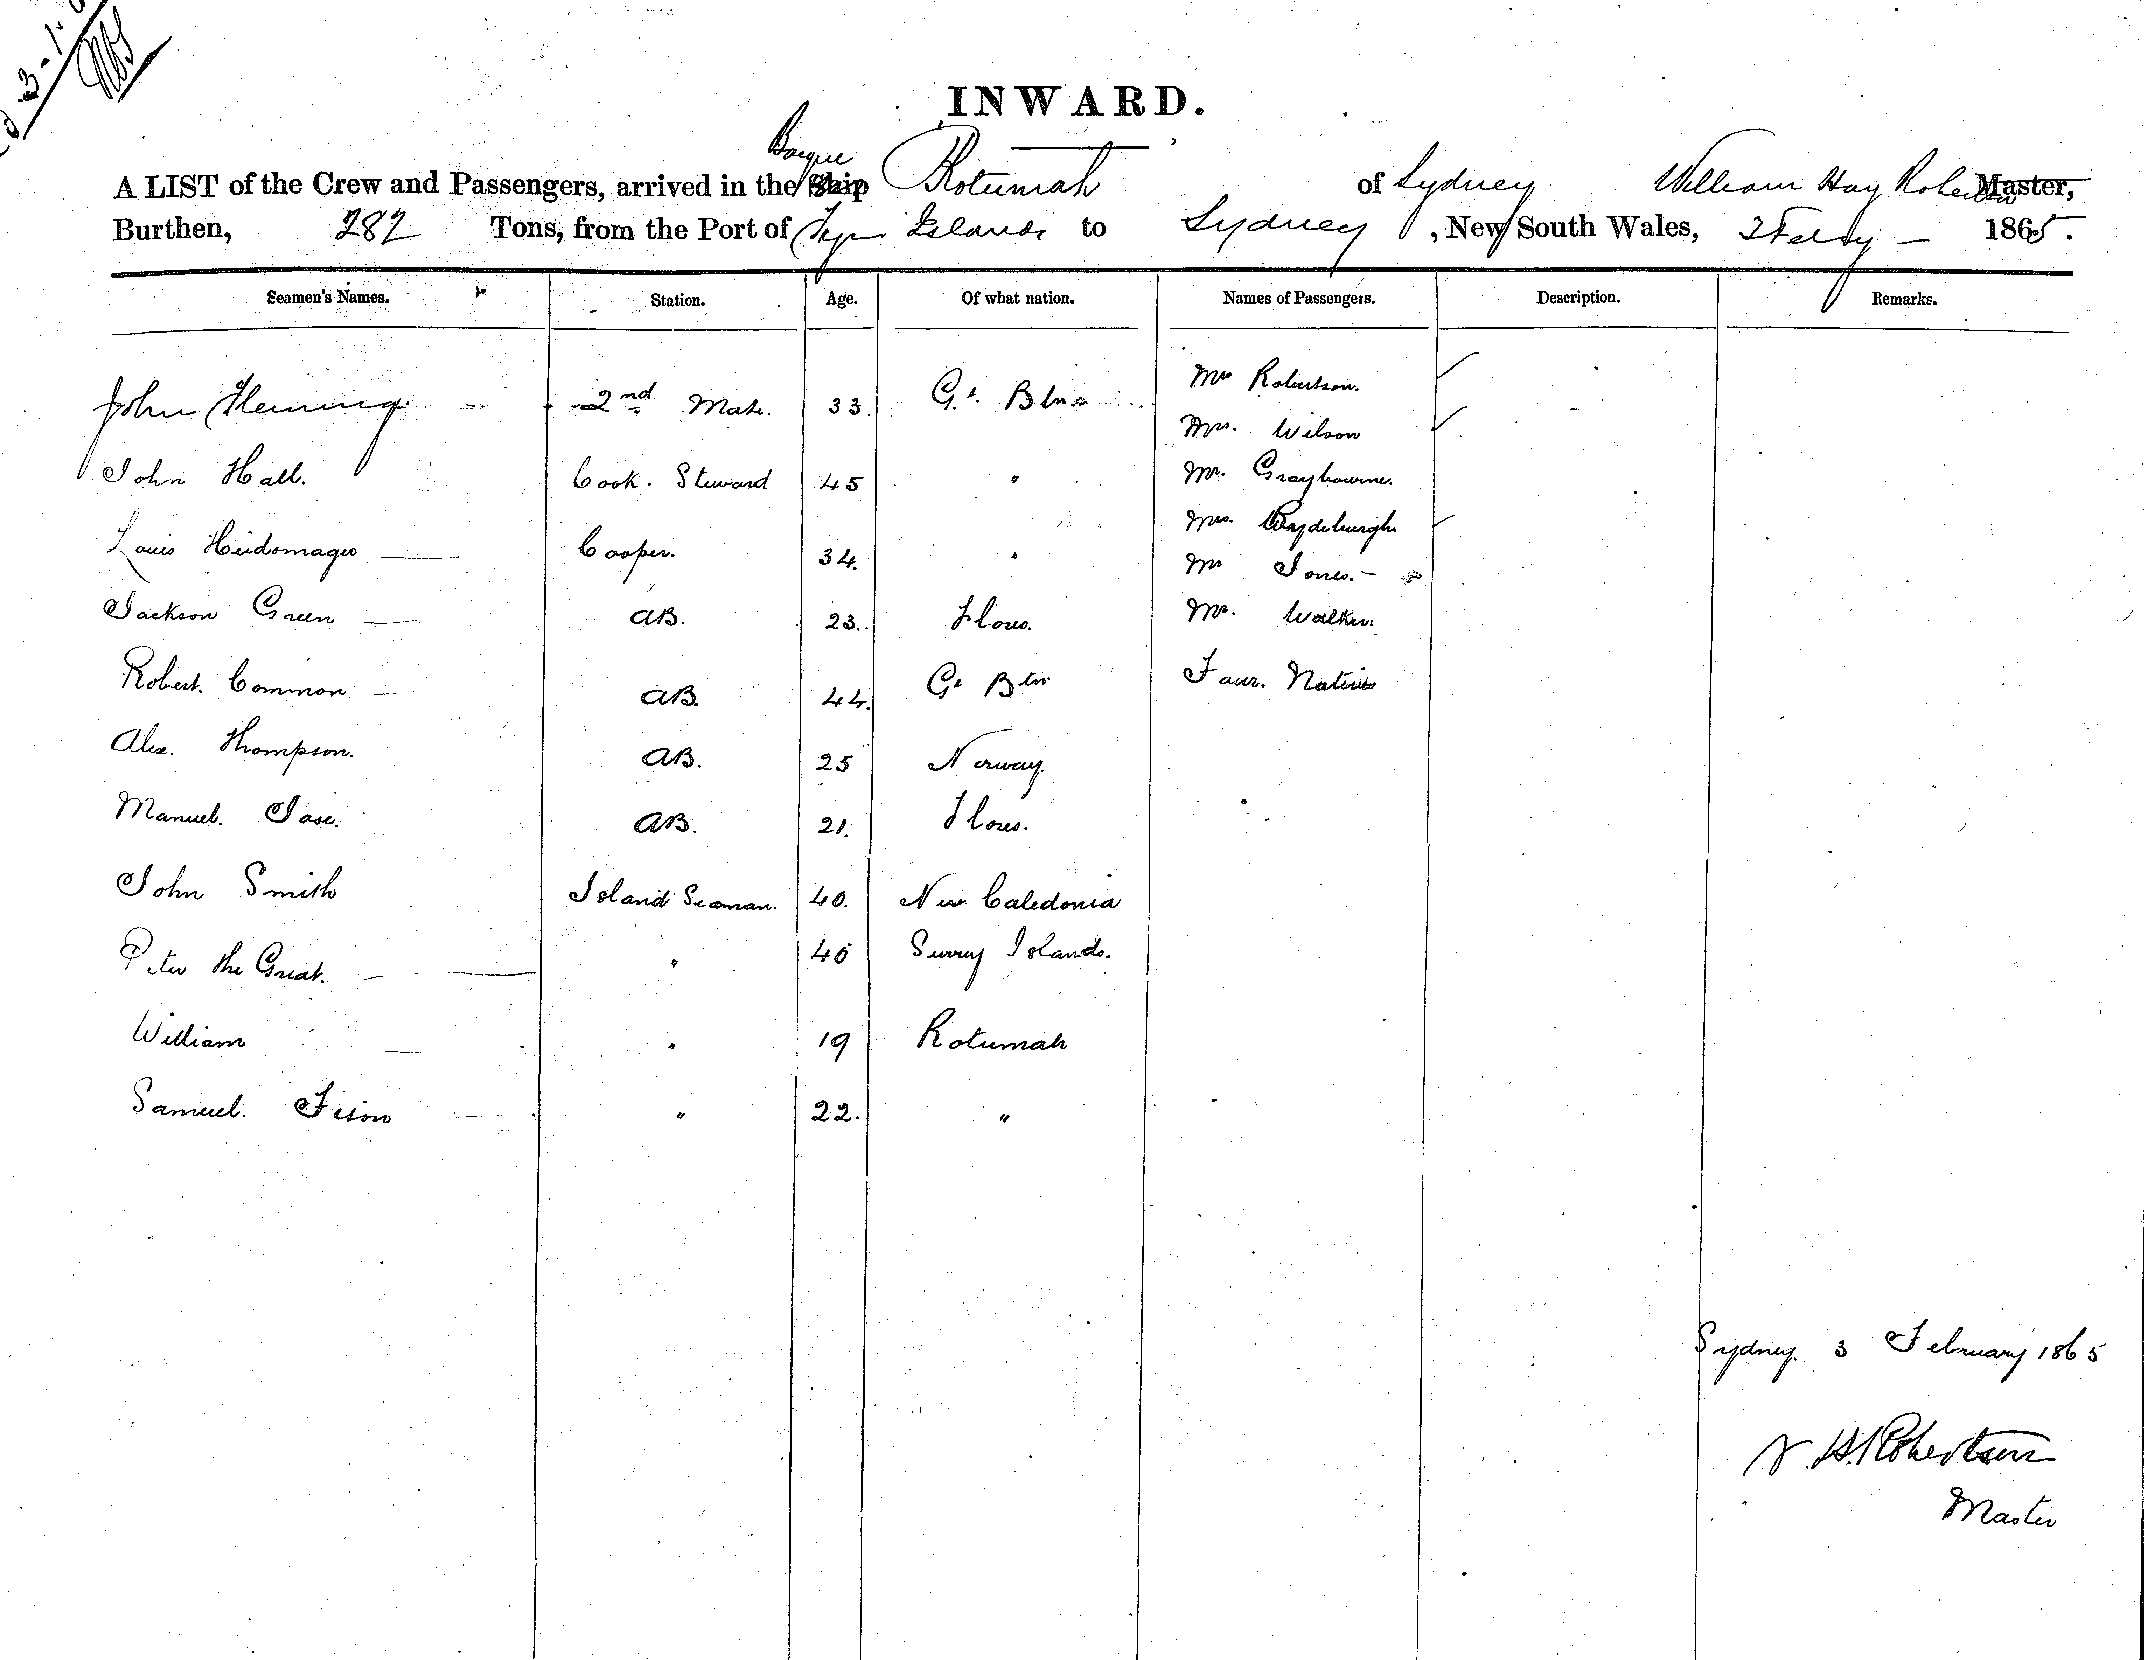 3-1-
INWARD.
Barque
A LIST of the Crew and Passengers, arrived in the Ship Rotumah of Sydney William Hay Robertson Master,
Burthen, 282 Tons, from the Port of Islands to Sydney, New South Wales, 1865.
Seamen's Names. Station. Age. Of what nation. Names of Passengers. Description. Remarks.
Mrs Robertson.
John Fleming 2nd Mate. 33 Gt. Btn
Mrs. Wilson
John Hall. Cook. Steward 45 " Mr. Graybourne.
Mrs.
Louis Cooper. 34. "
Mr Jones.
Jackson Green AB. 23. Flores. Mr. Walker.
Robert. Common AB. 44. Gt Btn Four. Natives
Alex. Thompson. AB. 25 Norway.
Manuel. Jose. AB. 21. Flores.
John Smith Island Seaman. 40. New Caledonia
Peter the Great. " 40 Islands.
William " 19 Rotumah
Samuel. " 22. "
Sydney. 3 February 1865
W. H. Robertson
Master